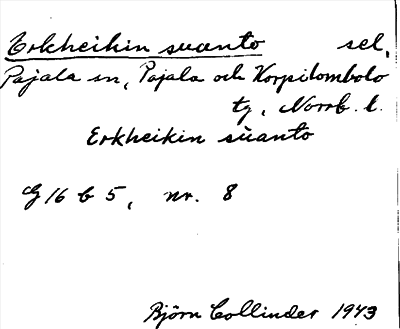 Erkheikin suanto sel.
Pajala sn, Pajala och Korpilombolo
tg, Norrb. l.
Erkheikin suanto
G 16 b 5, nr. 8
Björn Collinder 1943